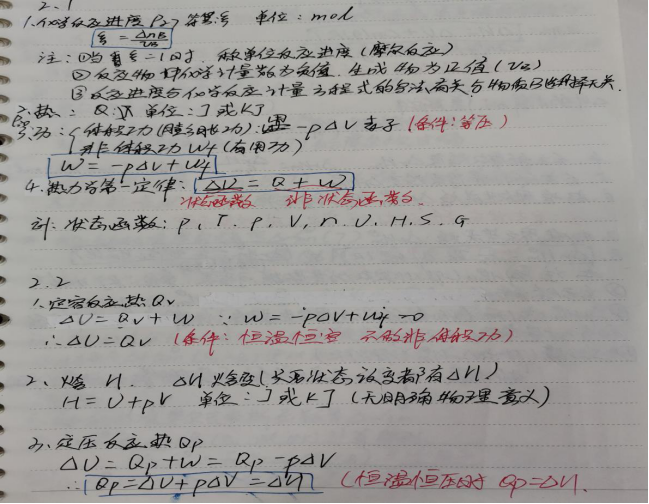 2.1
1.化学反应进度 P27 符号:ξ 单位:mol
ξ = ΔnB/νB
注:①当ξ=1时.称单位反应进度(摩尔反应)
②反应物的化学计量数为负值.生成物为正值(νB)
③反应进度与化学反应计量方程式的写法有关与物质B选择无关.
2.热: Q 单位:J或KJ
3.功:体积功(膨胀功):-pΔV 表示(条件:等压)
非体积功Wf(有用功)
W=-pΔV+Wf
4.热力学第一定律:ΔU=Q+W
状态函数 非状态函数.
状态函数:P,T.p,V,n.U,H.S.G
2.2
1.定容反应热Qv
ΔU=Qv+W ∵W=-pΔV+Wf=0
∴ΔU=Qv(条件:恒温恒容 不做非体积功)
2、焓H. ΔH焓变(只要状态改变都有ΔH)
H=U+pV 单位:J或KJ(无明确物理意义)
3.定压反应热Qp
ΔU=Qp+W=Qp-pΔV
∴Qp=ΔU+pΔV=ΔH (恒温恒压时Qp=ΔH.